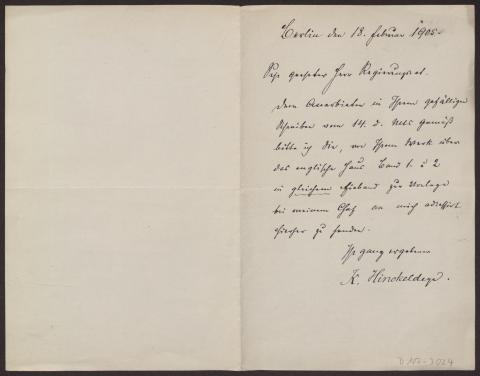 Berlin den 18. Februar 1905.
Sehr geehrter Herr Regierungsrat.
Dem Anerbieten in Ihrem gefälligen
Schreiben vom 14. d. Mts. gemäß
bitte ich Sie, von Ihrem Werk über
das englische Haus Band 1. u 2
in gleichem Einband zur Vorlage
bei meinem Chef an mich adressirt
hierher zu senden.
Ihr ganz ergebener
K. Hinckeldeyn.